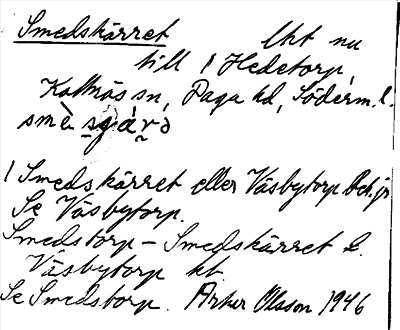 Smedskärret lht nu
till 1 Hedetorp,
Kattnäs sn, Daga hd, Söderm. l.
1 Smedskärret eller Väsbytorp
Se Väsbytorp.
Smedstorp - Smedskärret l.
Väsbytorp ht.
Se Smedstorp. Olsson 1946